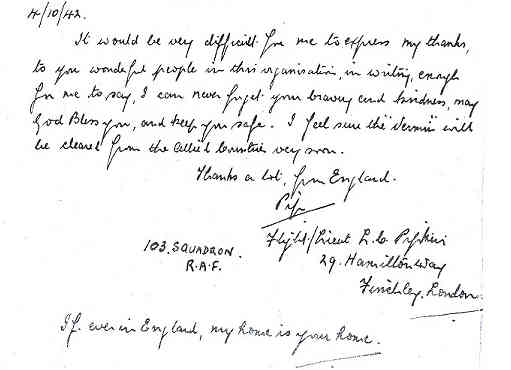 4/10/42.
It would be very difficult for me to express my thanks,
to you wonderful people in this organisation, in writing, enough
for me to say, I can never forget your bravery and kindness, may
God Bless you, and keep you safe. I feel sure the "Vermin" will
be cleared from the Allied Countries very soon.
Thanks a lot, from England.
Pip
103. SQUADRON.
R.A.F.
Flight/Lieut L.C. Pipkin
29. Hamilton Way
Finchley. London.
If ever in England, my home is your home.